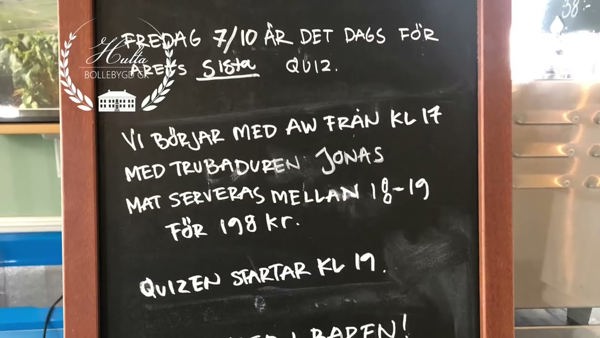 FREDAG 7/10 ÄR DET DAGS FÖR
ÅRETS Sista QUIZ.
Hulta
BOLLEBYGD GK
VI BÖRJAR MED AW FRÅN KL 17
MED TRUBADUREN JONAS
MAT SERVERAS MELLAN 18-19
FÖR 198 kr.
QUIZEN STARTAR KL 19.
I BAREN!
38:-